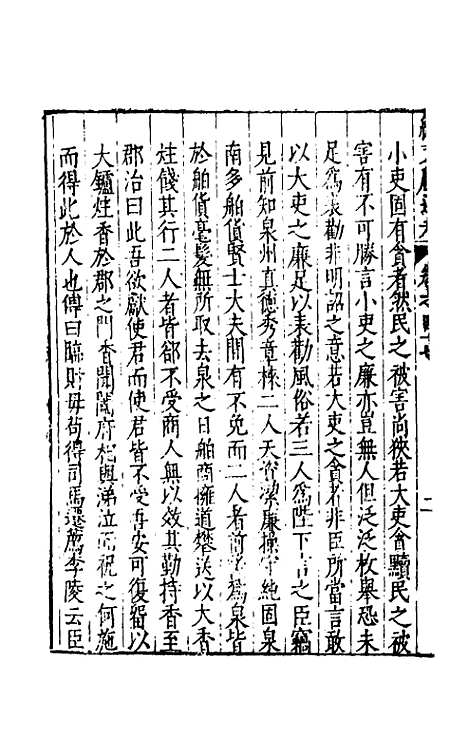 小吏固有貪者然民之被害尚狹若大吏會黷民之被
害有不可勝言小吏之廉亦豈無人但泛泛枚舉恐未
足爲表勸非明詔之意若大吏之貪者非臣所當言敢
以大吏之廉足以表勸風俗者三人爲陛下言之臣竊
見前知泉州真德秀章棶二人天資潔廉操守純固泉
南多舶貨賢士大夫間有不免而二人者前守爲泉皆
於舶貨毫髮無所取去泉之日舶商擁道攀送以大香
炷餞其行二人者皆郤不受商人無以效其勤持香至
郡治曰此吾欲獻使君而使君皆不受吾安可復留以
大鑪炷香於郡之門香聞闔府相與涕泣而祝之何施
而得此於人也傳曰臨財毋苟得司馬遷薦李陵云臣